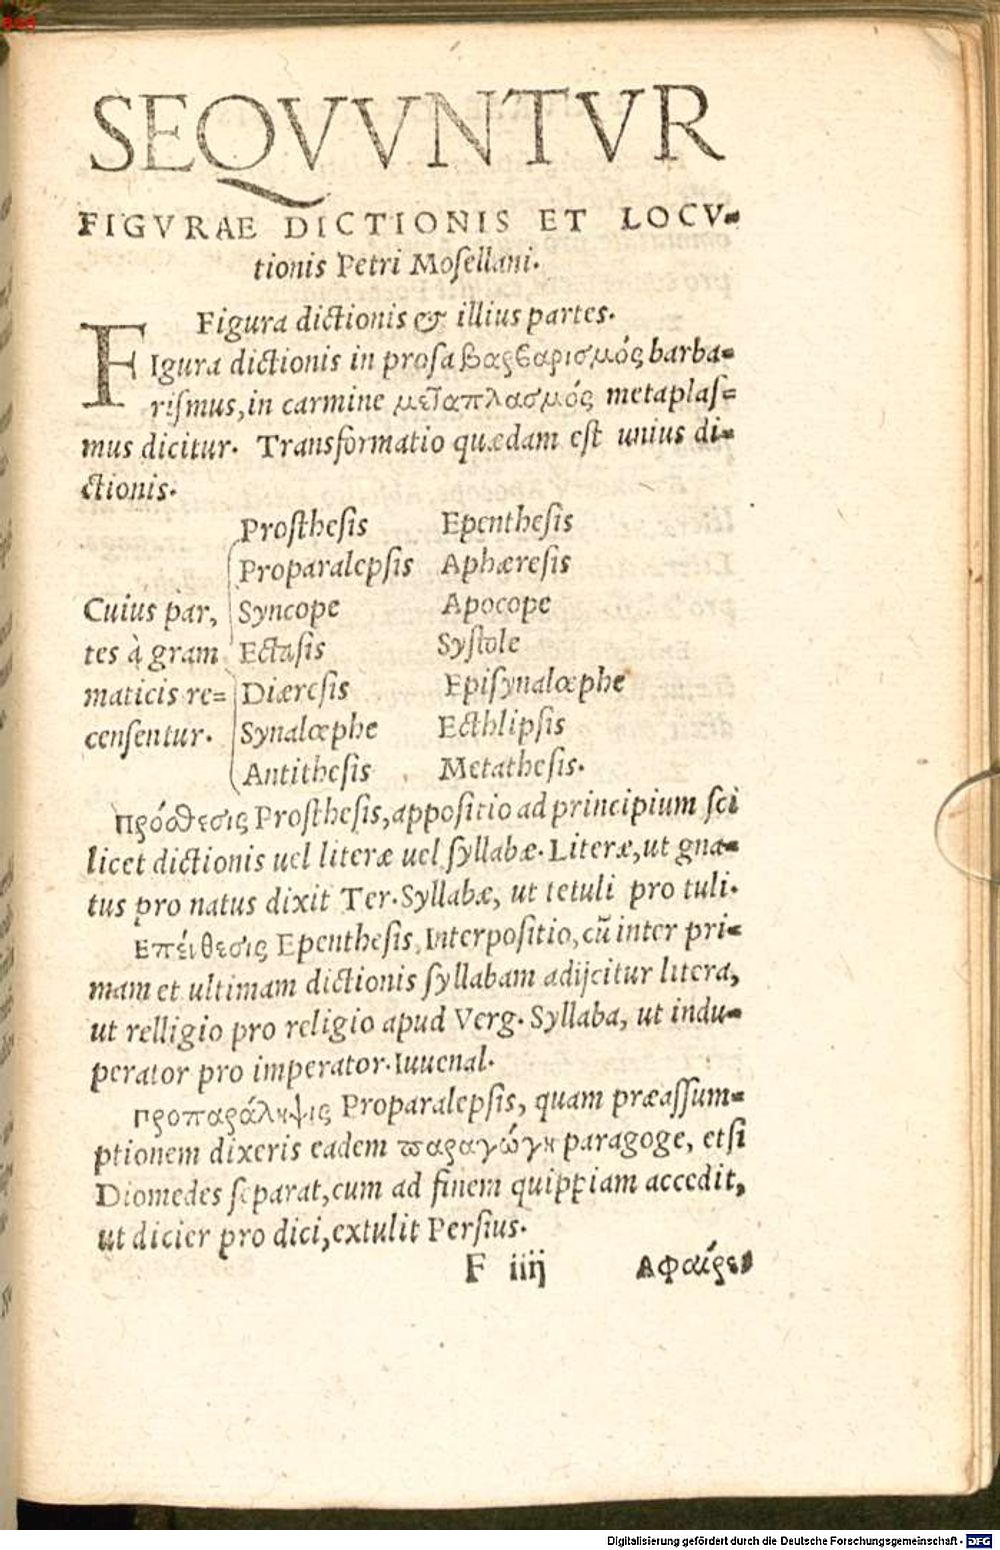 SEQVVNTVR
FIGVRAE DICTIONIS ET LOCV-
tionis Petri Moſellani.
Figura dictionis & illius partes.
FIgura dictionis in proſa βαρβαρισμός barba-
riſmus, in carmine μεταπλασμός metaplaſ-
mus dicitur. Transformatio quædam eſt unius di-
ctionis.
Proſtheſis Epentheſis
Proparalepſis Aphæreſis
Cuius par, Syncope Apocope
tes à gram Ectaſis Syſtole
maticis re- Diæreſis Epiſynalœphe
cenſentur. Synalœphe Ecthlipſis
Antitheſis Metatheſis.
πρόσθεσις Proſtheſis, appoſitio ad principium ſci
licet dictionis uel literæ uel ſyllabæ. Literæ, ut gna-
tus pro natus dixit Ter. Syllabæ, ut tetuli pro tuli.
Επένθεσις Epentheſis, Interpoſitio, cũ inter pri-
mam et ultimam dictionis ſyllabam adijcitur litera,
ut relligio pro religio apud Verg. Syllaba, ut indu-
perator pro imperator. Iuuenal.
προπαράληψις Proparalepſis, quam præaſſum-
ptionem dixeris eadem παραγώγη paragoge, etſi
Diomedes ſeparat, cum ad finem quippiam accedit,
ut dicier pro dici, extulit Perſius.
F iiij Αφαίρε-
Digitalisierung gefördert durch die Deutsche Forschungsgemeinschaft - DFG